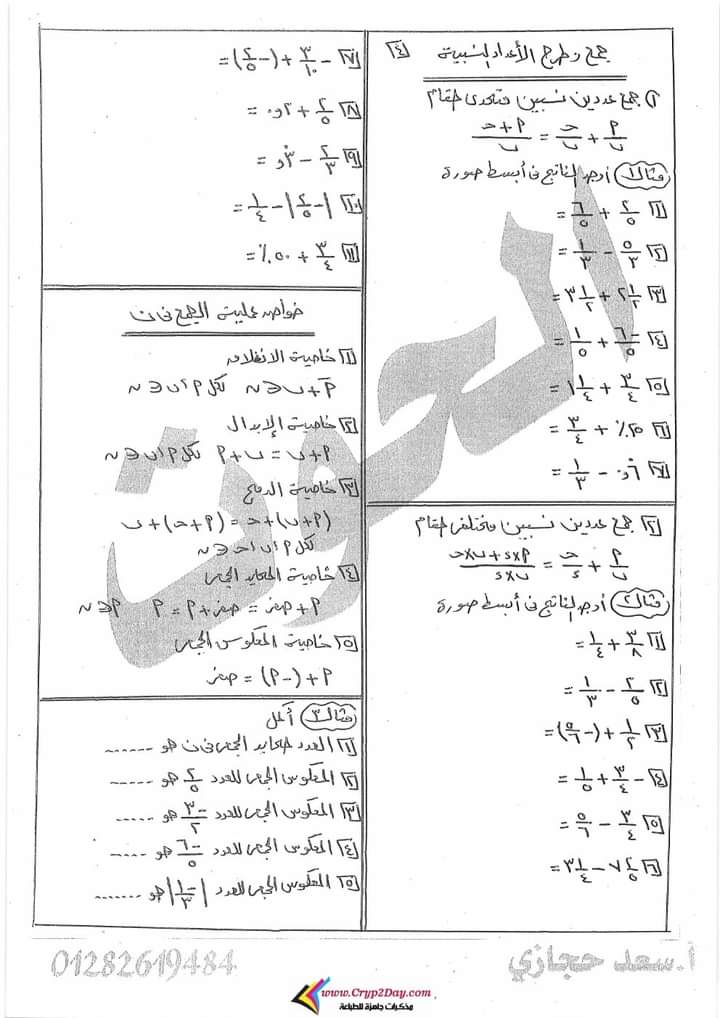 ٤
جمع وطرح الأعداد النسبية
١) جمع عددين نسبيين متحدى المقام
م/ب + ح/ب = (م + ح)/ب
مثال ١ أوجد الناتج فى أبسط صورة
١) ٢/٥ + ٦/٥ =
٢) ٥/٣ - ١/٣ =
٣) ٢ ١/٢ + ٣ ١/٢ =
٤) -٦/٥ + ١/٥ =
٥) ٣/٤ + ١ ١/٤ =
٦) ٢٥٪ + ٣/٤ =
٧) ٠,٦ - ١/٣ =
٢) جمع عددين نسبيين مختلفى المقام
م/ب + ح/s = (م×s + ب×ح)/(ب×s)
مثال ٢ أوجد الناتج فى أبسط صورة
١) ٣/٨ + ١/٤ =
٢) ٢/٥ - ١/٣ =
٣) ١/٢ + (-٥/٦) =
٤) -٣/٤ + ١/٥ =
٥) ٣/٤ - ٥/٦ =
٦) ٧ ٢/٥ - ٣ ١/٤ =
٧) -٣/١٠ + (-٢/٥) =
٨) ٢/٥ + ٠,٢ =
٩) ٢/٣ - ٠,٣ =
١٠) |-٢/٥| - ١/٤ =
١١) ٣/٤ + ٥٠٪ =
خواص عملية الجمع فى ن
١) خاصية الانغلاق
م + ب ∈ ن لكل م، ب ∈ ن
٢) خاصية الإبدال
م + ب = ب + م لكل م، ب ∈ ن
٣) خاصية الدمج
(م + ب) + ح = (م + ح) + ب
لكل م، ب، ح ∈ ن
٤) خاصية المحايد الجمعى
م + صفر = صفر + م = م م ∈ ن
٥) خاصية المعكوس الجمعى
م + (-م) = صفر
مثال ٣ أكمل
١) العدد المحايد الجمعى فى ن هو ......
٢) المعكوس الجمعى للعدد ٢/٥ هو ......
٣) المعكوس الجمعى للعدد -٣/٢ هو .....
٤) المعكوس الجمعى للعدد -٦/٥ هو .....
٥) المعكوس الجمعى للعدد |-١/٣| هو .......
العوت
أ.سعد حجازي
01282619484
www.Cryp2Day.com
مذكرات جاهزة للطباعة